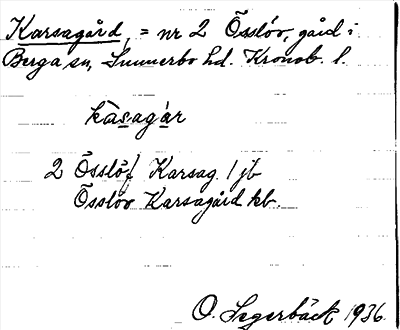 Karsagård, = nr 2 Össlöv, gård i
Berga sn, Sunnerbo hd. Kronob. l.
kàsagár
2 Össlöf Karsag. / jb
Össlöv Karsagård kb.
O. Segerbäck 1936.